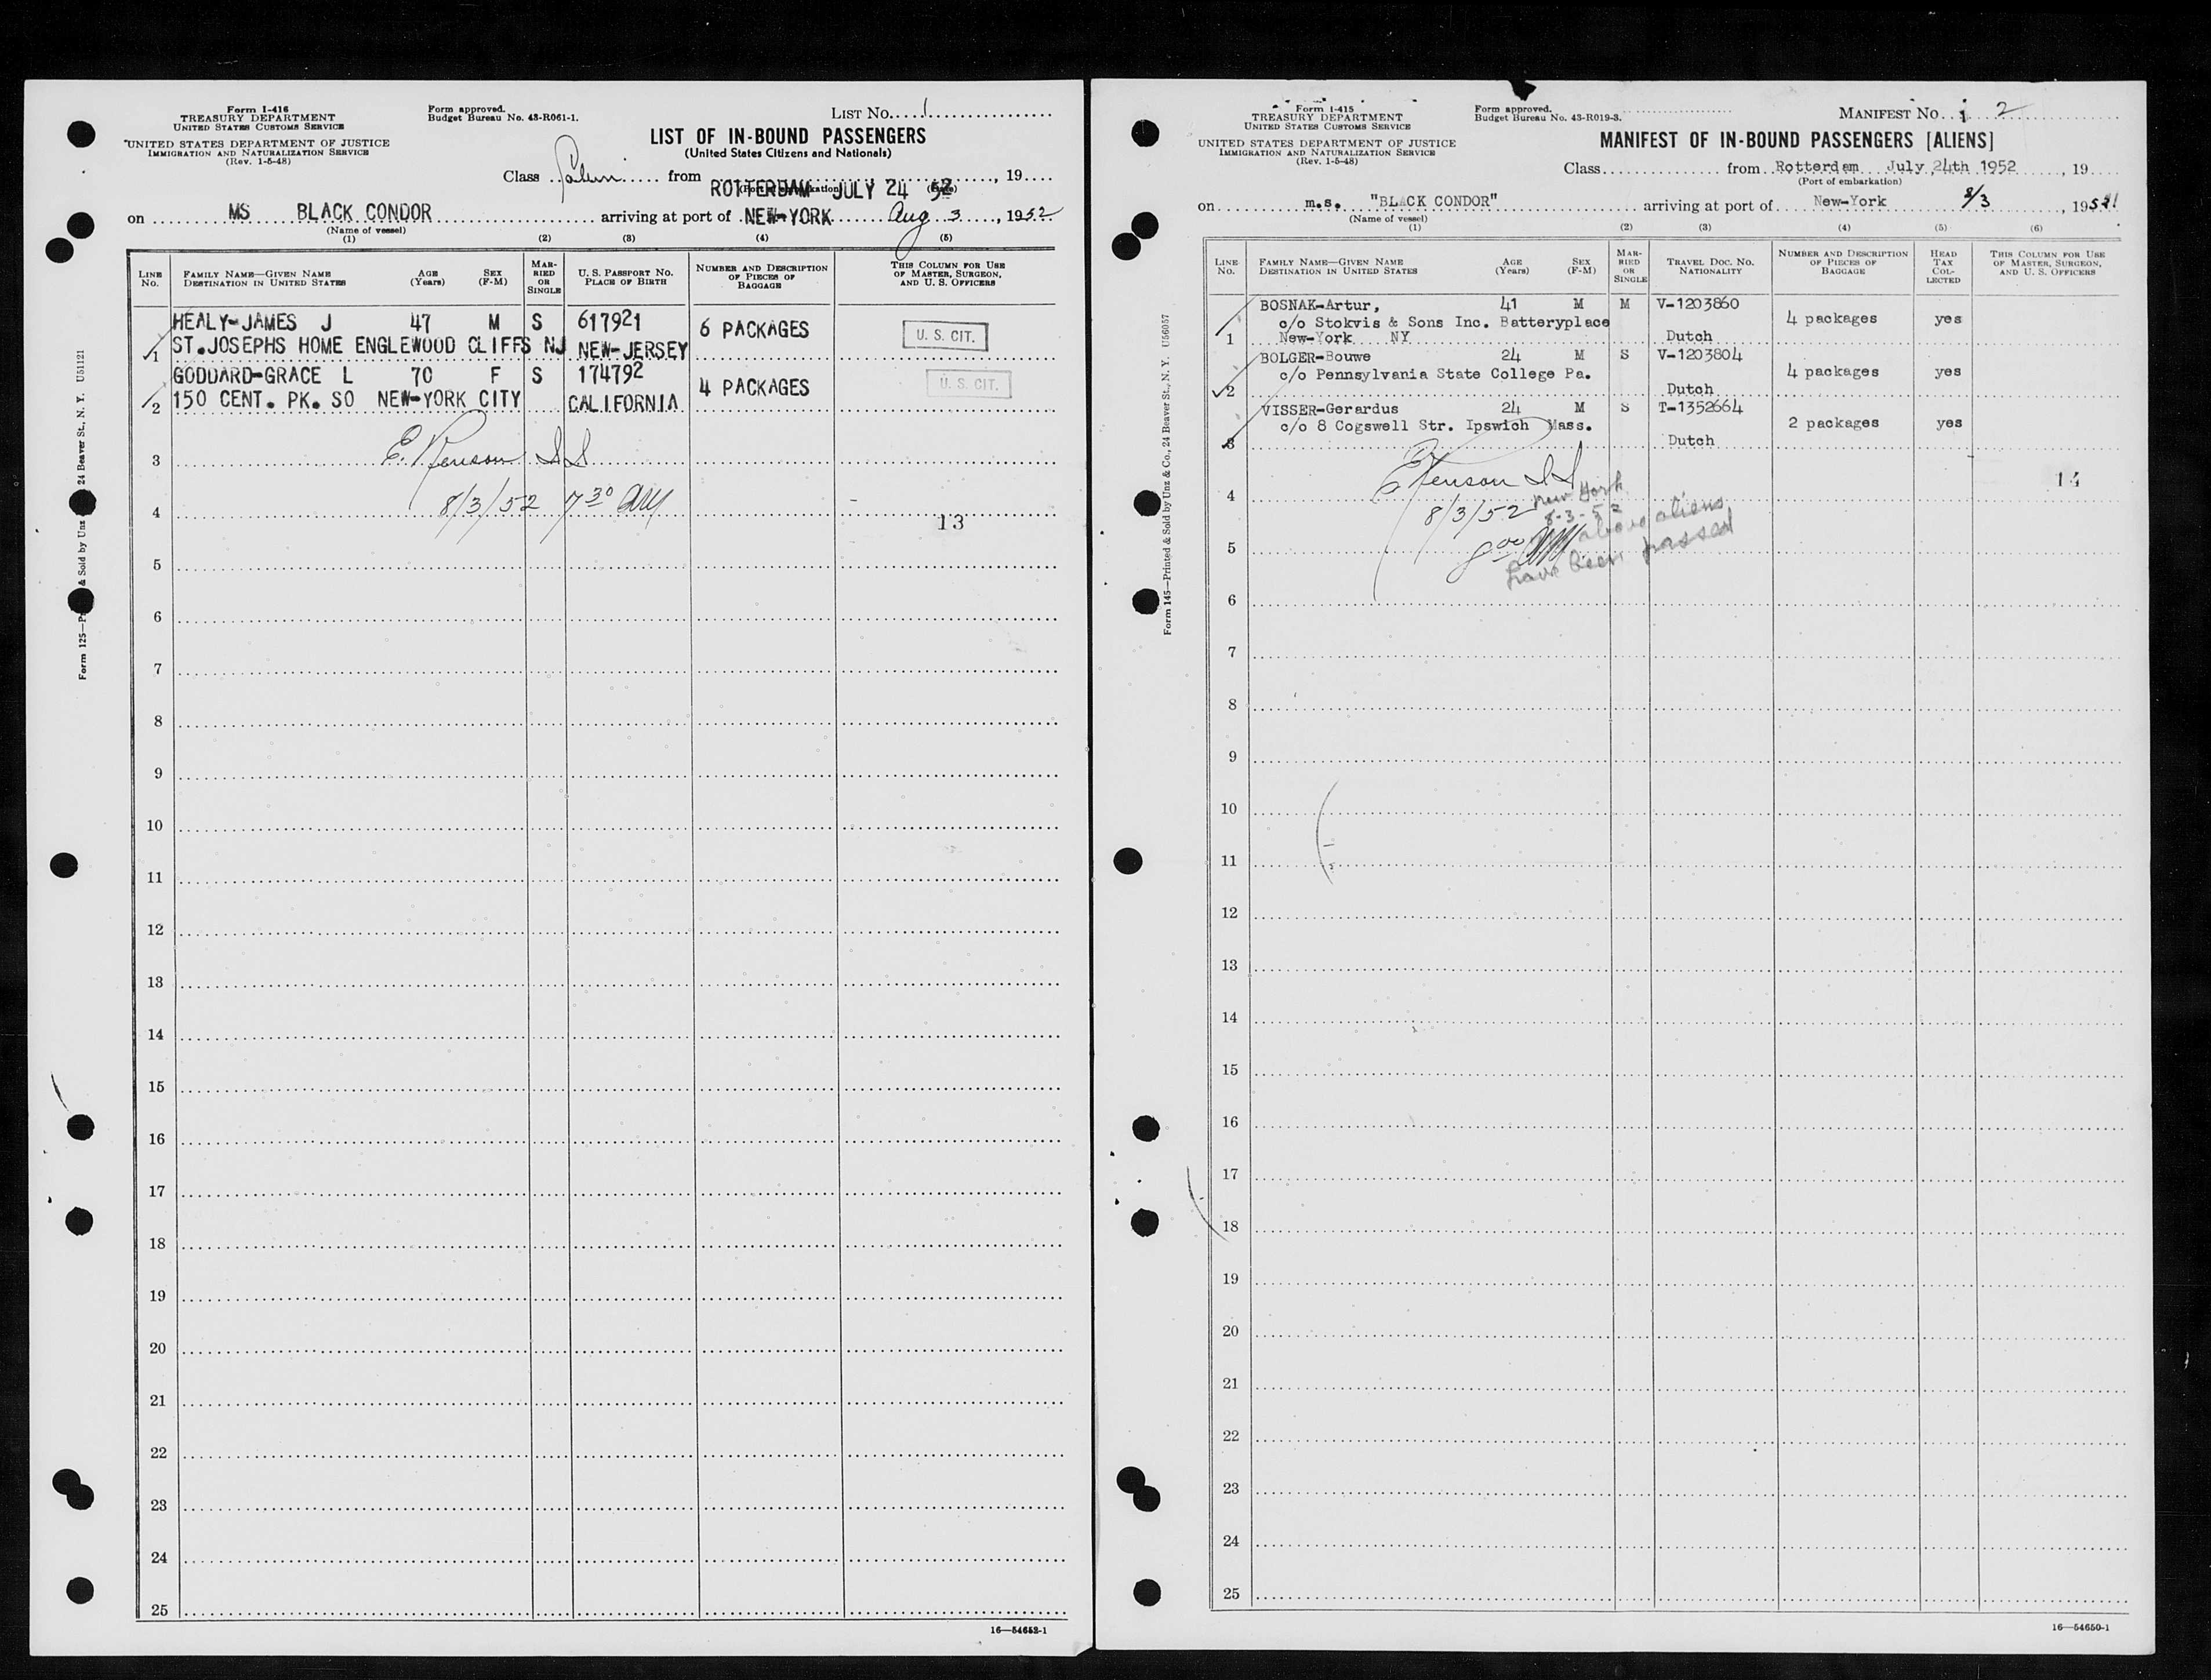 Form I-416
TREASURY DEPARTMENT
UNITED STATES CUSTOMS SERVICE
UNITED STATES DEPARTMENT OF JUSTICE
IMMIGRATION AND NATURALIZATION SERVICE
(Rev. 1-5-48)
Form approved.
Budget Bureau No. 43-R061-1.
LIST No. 1
LIST OF IN-BOUND PASSENGERS
(United States Citizens and Nationals)
Class from ROTTERDAM JULY 24 52, 19
(Port of embarkation) (Date)
on MS BLACK CONDOR arriving at port of NEW-YORK Aug 3, 1952
(Name of vessel)
(1) (2) (3) (4) (5)
LINE No.
FAMILY NAME—GIVEN NAME
DESTINATION IN UNITED STATES
AGE (Years)
SEX (F-M)
MARRIED OR SINGLE
U. S. PASSPORT NO.
PLACE OF BIRTH
NUMBER AND DESCRIPTION OF PIECES OF BAGGAGE
THIS COLUMN FOR USE OF MASTER, SURGEON, AND U. S. OFFICERS
HEALY-JAMES J 47 M S 617921 6 PACKAGES U. S. CIT.
1 ST.JOSEPHS HOME ENGLEWOOD CLIFFS NJ NEW-JERSEY
GODDARD-GRACE L 70 F S 174792 4 PACKAGES U. S. CIT.
2 150 CENT. PK. SO NEW-YORK CITY CALIFORNIA
3 E.
4 8/3/52 7 30 AM 13
5
6
7
8
9
10
11
12
13
14
15
16
17
18
19
20
21
22
23
24
25
16—54652-1
& Sold by Unz 24 Beaver St., N. Y. U51121
Form 125—
Form I-415
TREASURY DEPARTMENT
UNITED STATES CUSTOMS SERVICE
UNITED STATES DEPARTMENT OF JUSTICE
IMMIGRATION AND NATURALIZATION SERVICE
(Rev. 1-5-48)
Form approved.
Budget Bureau No. 43-R019-3.
MANIFEST No. 1 2
MANIFEST OF IN-BOUND PASSENGERS [ALIENS]
Class from Rotterdam July 24th 1952, 19
(Port of embarkation)
on m.s. "BLACK CONDOR" arriving at port of New-York 8/3, 1952
(Name of vessel)
(1) (2) (3) (4) (5) (6)
LINE No.
FAMILY NAME—GIVEN NAME
DESTINATION IN UNITED STATES
AGE (Years)
SEX (F-M)
MARRIED OR SINGLE
TRAVEL DOC. NO.
NATIONALITY
NUMBER AND DESCRIPTION OF PIECES OF BAGGAGE
HEAD TAX COLLECTED
THIS COLUMN FOR USE OF MASTER, SURGEON, AND U. S. OFFICERS
BOSNAK-Artur, 41 M M V-1203860
c/o Stokvis & Sons Inc. Batteryplace 4 packages yes
1 New-York NY Dutch
BOLGER-Bouwe 24 M S V-1203804
c/o Pennsylvania State College Pa. 4 packages yes
2 Dutch
VISSER-Gerardus 24 M S T-1352664
c/o 8 Cogswell Str. Ipswich Mass. 2 packages yes
3 Dutch
4 14
8/3/52 New York
8-3-52
5 8 00 AM above aliens
have been passed
6
7
8
9
10
11
12
13
14
15
16
17
18
19
20
21
22
23
24
25
16—54650-1
Form 145—Printed & Sold by Unz & Co., 24 Beaver St., N. Y. U56057